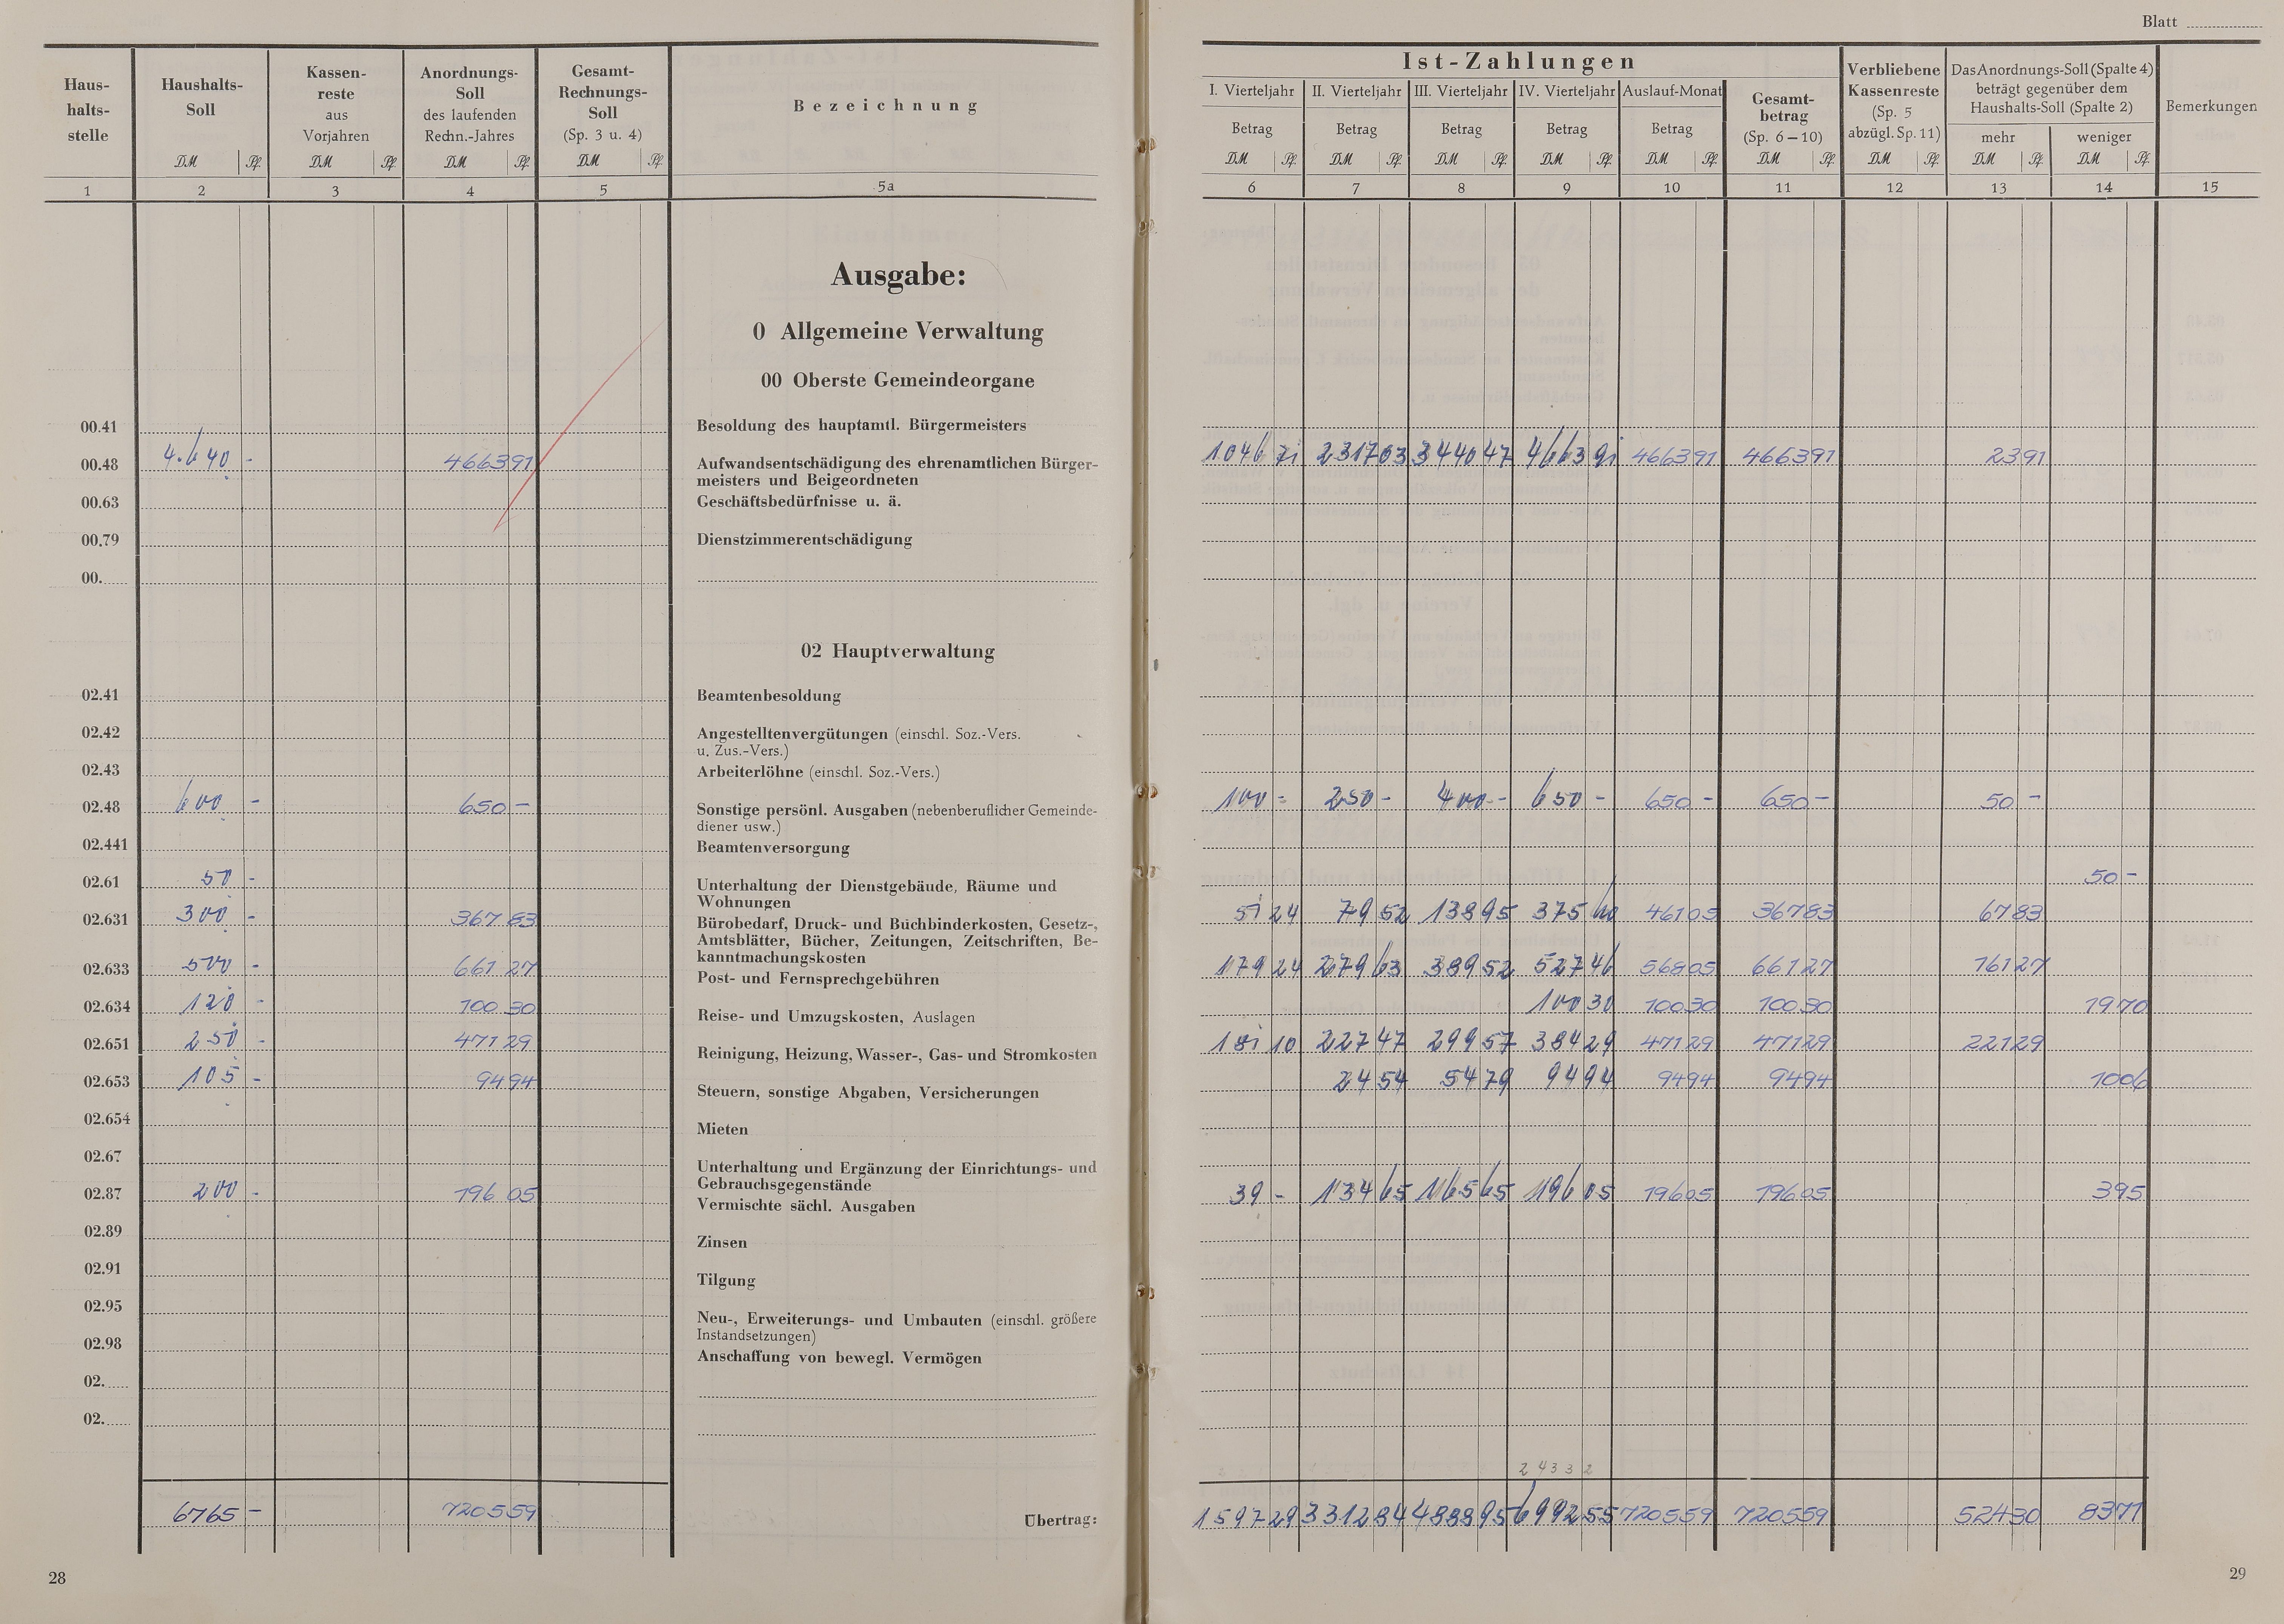 Blatt
Haus-
halts-
stelle
Haushalts-
Soll
DM Pf.
Kassen-
reste
aus
Vorjahren
DM Pf.
Anordnungs-
Soll
des laufenden
Rechn.-Jahres
DM Pf.
Gesamt-
Rechnungs-
Soll
(Sp. 3 u. 4)
DM Pf.
Bezeichnung
Ist-Zahlungen
I. Vierteljahr
Betrag
DM Pf.
II. Vierteljahr
Betrag
DM Pf.
III. Vierteljahr
Betrag
DM Pf.
IV. Vierteljahr
Betrag
DM Pf.
Auslauf-Monat
Betrag
DM Pf.
Gesamt-
betrag
(Sp. 6–10)
DM Pf.
Verbliebene
Kassenreste
(Sp. 5
abzügl. Sp. 11)
DM Pf.
Das Anordnungs-Soll (Spalte 4)
beträgt gegenüber dem
Haushalts-Soll (Spalte 2)
mehr weniger
DM Pf. DM Pf.
Bemerkungen
1 2 3 4 5 5a 6 7 8 9 10 11 12 13 14 15
Ausgabe:
0 Allgemeine Verwaltung
00 Oberste Gemeindeorgane
00.41 Besoldung des hauptamtl. Bürgermeisters
00.48 4.640 - 4663 91 Aufwandsentschädigung des ehrenamtlichen Bürger- 1046 71 2317 03 3440 47 4663 91 4663 91 4663 91 23 91
meisters und Beigeordneten
00.63 Geschäftsbedürfnisse u. ä.
00.79 Dienstzimmerentschädigung
00.
02 Hauptverwaltung
02.41 Beamtenbesoldung
02.42 Angestelltenvergütungen (einschl. Soz.-Vers.
u. Zus.-Vers.)
02.43 Arbeiterlöhne (einschl. Soz.-Vers.)
02.48 600 - 650 - Sonstige persönl. Ausgaben (nebenberuflicher Gemeinde- 100 - 250 - 400 - 650 - 650 - 650 - 50 -
diener usw.)
02.441 Beamtenversorgung
02.61 50 - Unterhaltung der Dienstgebäude, Räume und 50 -
Wohnungen
02.631 300 - 367 83 Bürobedarf, Druck- und Buchbinderkosten, Gesetz-, 51 24 79 52 138 95 375 40 461 05 367 83 67 83
Amtsblätter, Bücher, Zeitungen, Zeitschriften, Be-
kanntmachungskosten
02.633 500 - 661 27 Post- und Fernsprechgebühren 179 24 279 63 389 52 527 46 568 05 661 27 161 27
02.634 120 - 100 30 Reise- und Umzugskosten, Auslagen 100 30 100 30 100 30 19 70
02.651 250 - 471 29 Reinigung, Heizung, Wasser-, Gas- und Stromkosten 181 10 227 47 299 57 384 29 471 29 471 29 221 29
02.653 105 - 94 94 Steuern, sonstige Abgaben, Versicherungen 24 54 54 79 94 94 94 94 94 94 10 06
02.654 Mieten
02.67 Unterhaltung und Ergänzung der Einrichtungs- und
Gebrauchsgegenstände
02.87 200 - 196 05 Vermischte sächl. Ausgaben 39 - 134 65 165 65 196 05 196 05 196 05 3 95
02.89 Zinsen
02.91 Tilgung
02.95 Neu-, Erweiterungs- und Umbauten (einschl. größere
Instandsetzungen)
02.98 Anschaffung von bewegl. Vermögen
02.
02.
2 43 3 2
6765 - 7205 59 Übertrag: 1597 29 3312 84 4888 95 6992 55 7205 59 7205 59 524 30 83 71
28
29